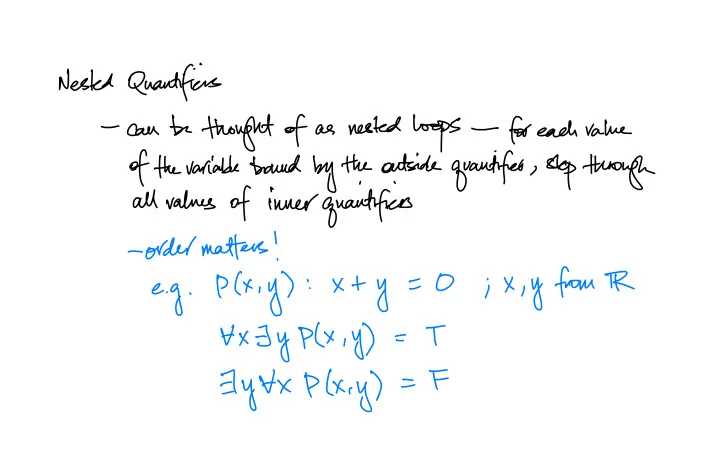 Nested Quantifiers
- can be thought of as nested loops - for each value
of the variable bound by the outside quantifier, step through
all values of inner quantifiers
- order matters!
e.g. P(x,y) : x + y = 0 ; x,y from ℝ
∀x∃y P(x,y) = T
∃y∀x P(x,y) = F